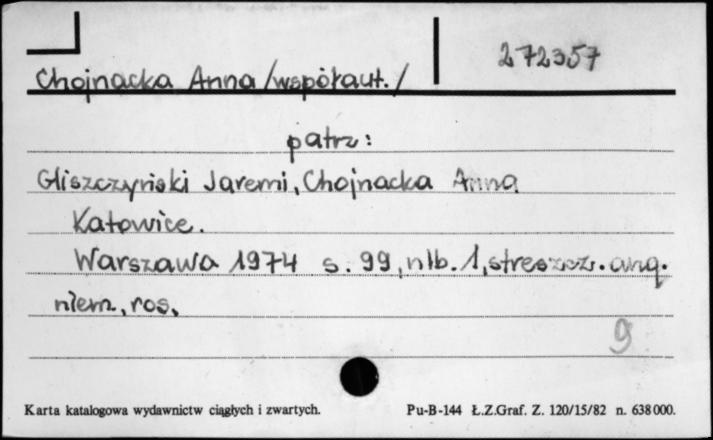 272357
Chojnacka Anna /współaut./
patrz:
Gliszczyński Jaremi, Chojnacka Anna
Katowice.
Warszawa 1974 s. 99, nlb. 1, streszcz. ang.
niem, ros.
9
Karta katalogowa wydawnictw ciągłych i zwartych. Pu-B-144 Ł.Z.Graf. Z. 120/15/82 n. 638000.